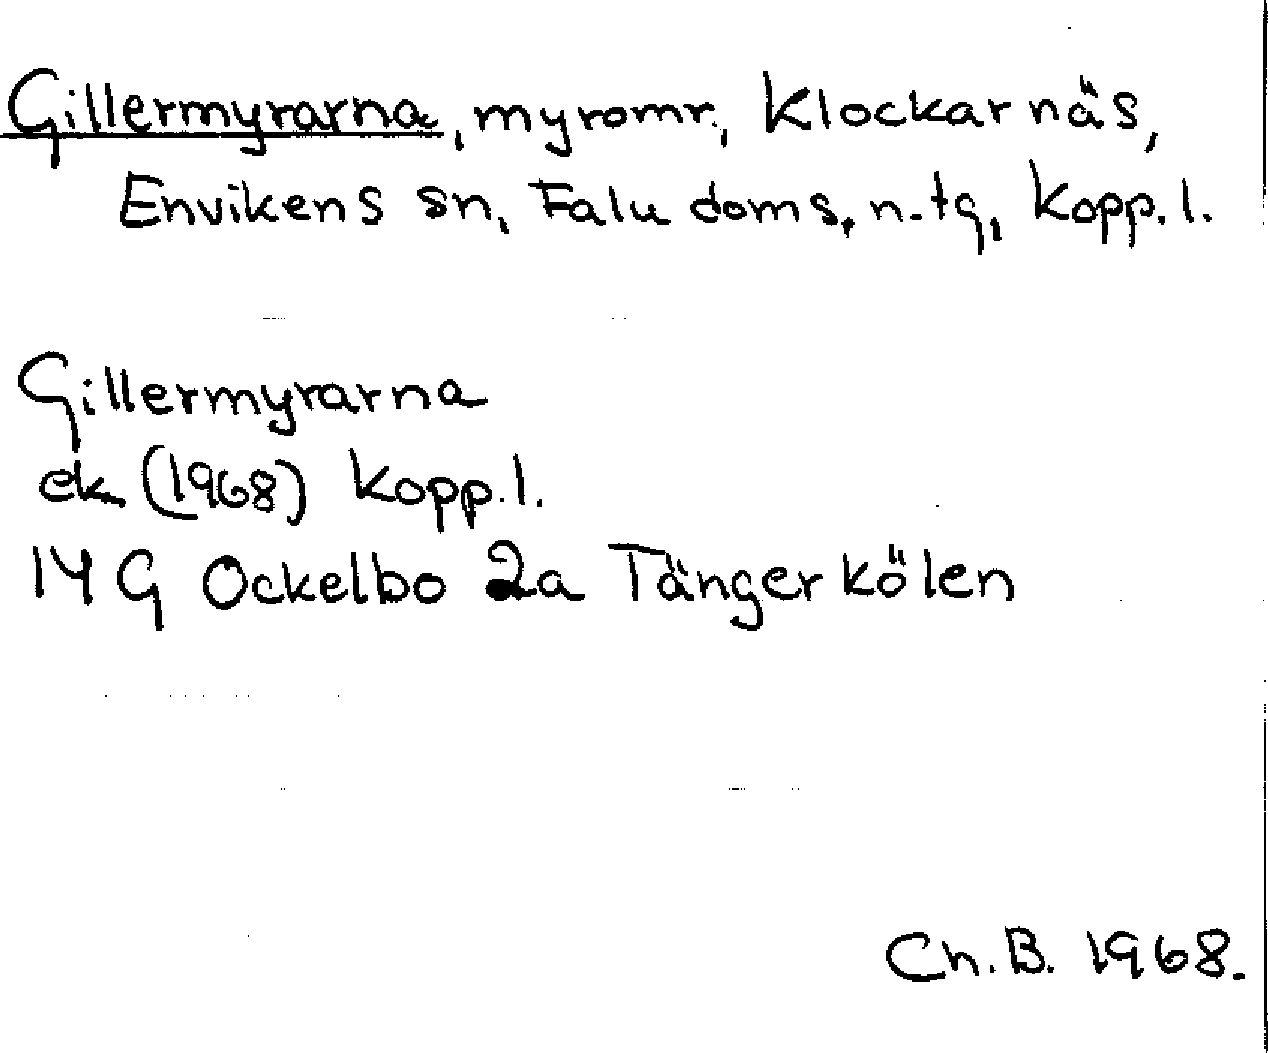 Gillermyrarna, myromr., Klockarnäs,
Envikens sn, Falu doms. n. tg, Kopp. l.
Gillermyrarna
ek (1968) Kopp. l.
14 G Ockelbo 2a Tängerkölen
Ch. B. 1968.